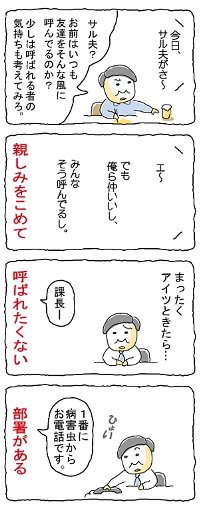 今日、
サル夫がさ～
サル夫？
お前はいつも
友達をそんな風に
呼んでるのか？
少しは呼ばれる者の
気持ちも考えてみろ。
エ～
でも
俺ら仲いいし、
みんな
そう呼んでるし。
親しみをこめて
まったく
アイツときたら…
課長ー
呼ばれたくない
ひょい
１番に
病害虫から
お電話です。
部署がある